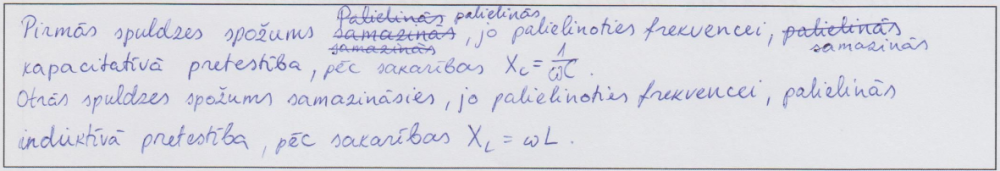 Pirmās spuldzes spožums palielinās, jo palielinoties frekvencei, samazinās
kapacitatīvā pretestība, pēc sakarības X_C = 1/ωC.
Otrās spuldzes spožums samazināsies, jo palielinoties frekvencei, palielinās
induktīvā pretestība, pēc sakarības X_L = ωL.